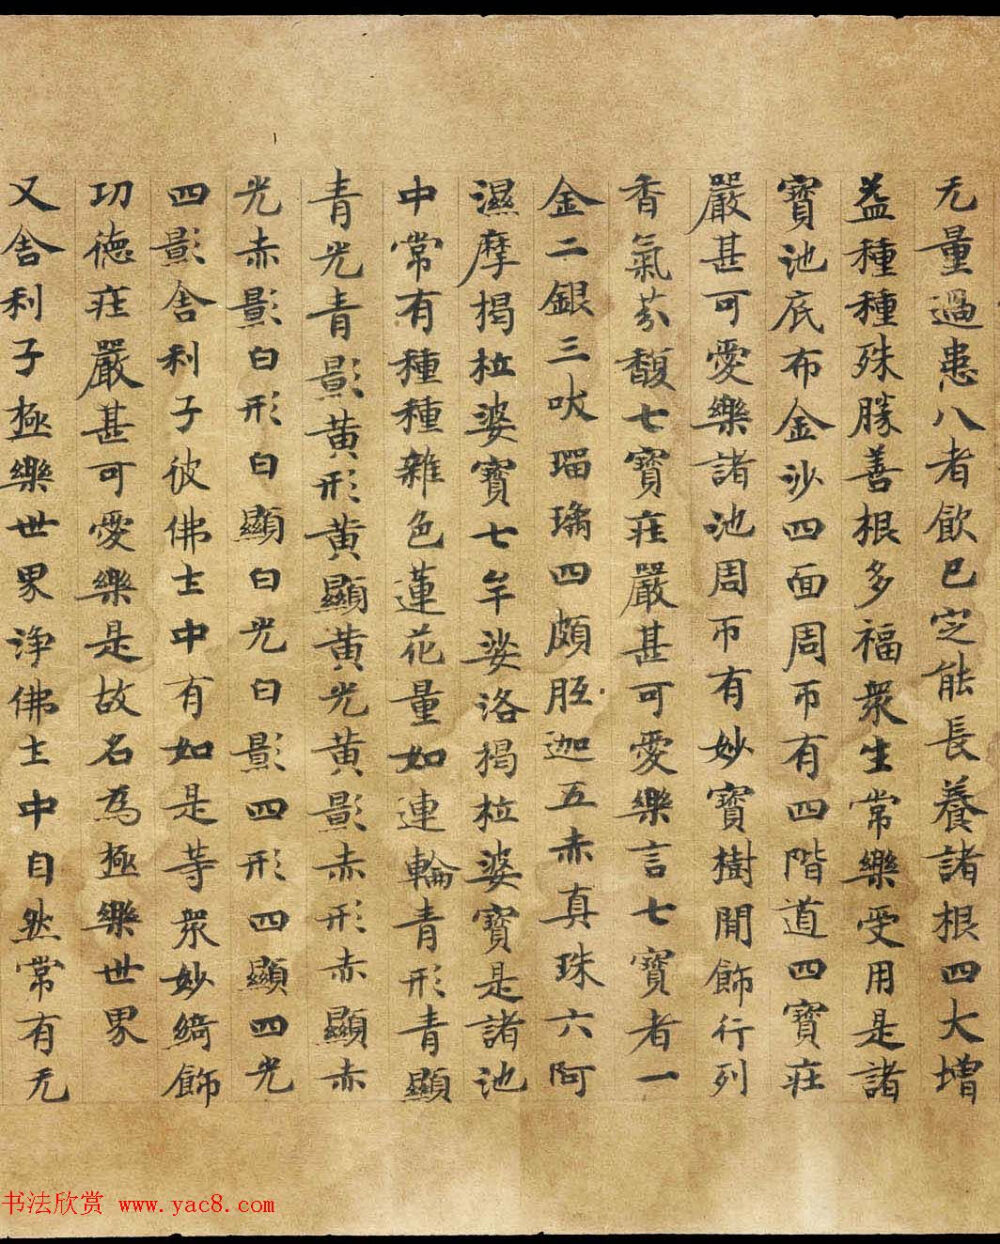 无量過患八者飲已定能長養諸根四大增
益種種殊勝善根多福眾生常樂受用是諸
寶池底布金沙四面周帀有四階道四寶莊
嚴甚可愛樂諸池周帀有妙寶樹間飾行列
香氣芬馥七寶莊嚴甚可愛樂言七寶者一
金二銀三吠瑠璃四頗胝迦五赤真珠六阿
濕摩揭拉婆寶七牟娑洛揭拉婆寶是諸池
中常有種種雜色蓮花量如連輪青形青顯
青光青影黃形黃顯黃光黃影赤形赤顯赤
光赤影白形白顯白光白影四形四顯四光
四影舍利子彼佛土中有如是等眾妙綺飾
功德莊嚴甚可愛樂是故名為極樂世界
又舍利子極樂世界淨佛土中自然常有无
书法欣赏 www.yac8.com